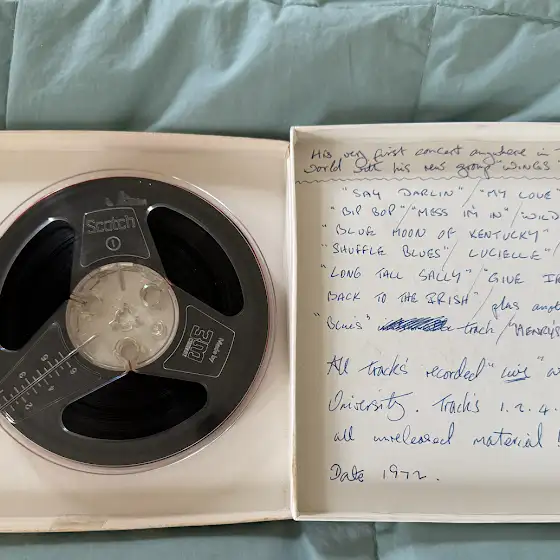 Scotch
Made by
3M
His very first concert anywhere in
world with his new group "WINGS
"SAY DARLIN" / "MY LOVE
"BIP BOP" / "MESS I'M IN" / "WILD
"BLUE MOON OF KENTUCKY"
"SHUFFLE BLUES" / LUCIELLE" /
"LONG TALL SALLY" / "GIVE IR
BACK TO THE IRISH" / plus
"Blues" track / "HENRY'S
All tracks recorded "live"
University. Tracks 1.2.4.
all unreleased material
Date 1972.